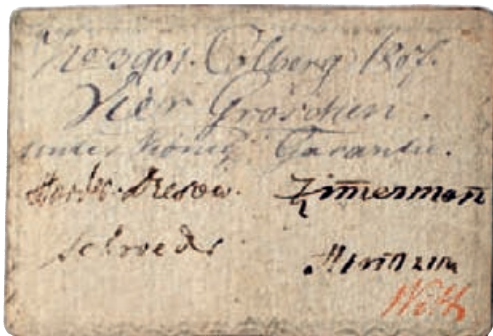 No 3901. Colberg 1807.
Vier Groschen.
unter Königl. Garantie.
Dresow. Zimmerman̄
Schroeder